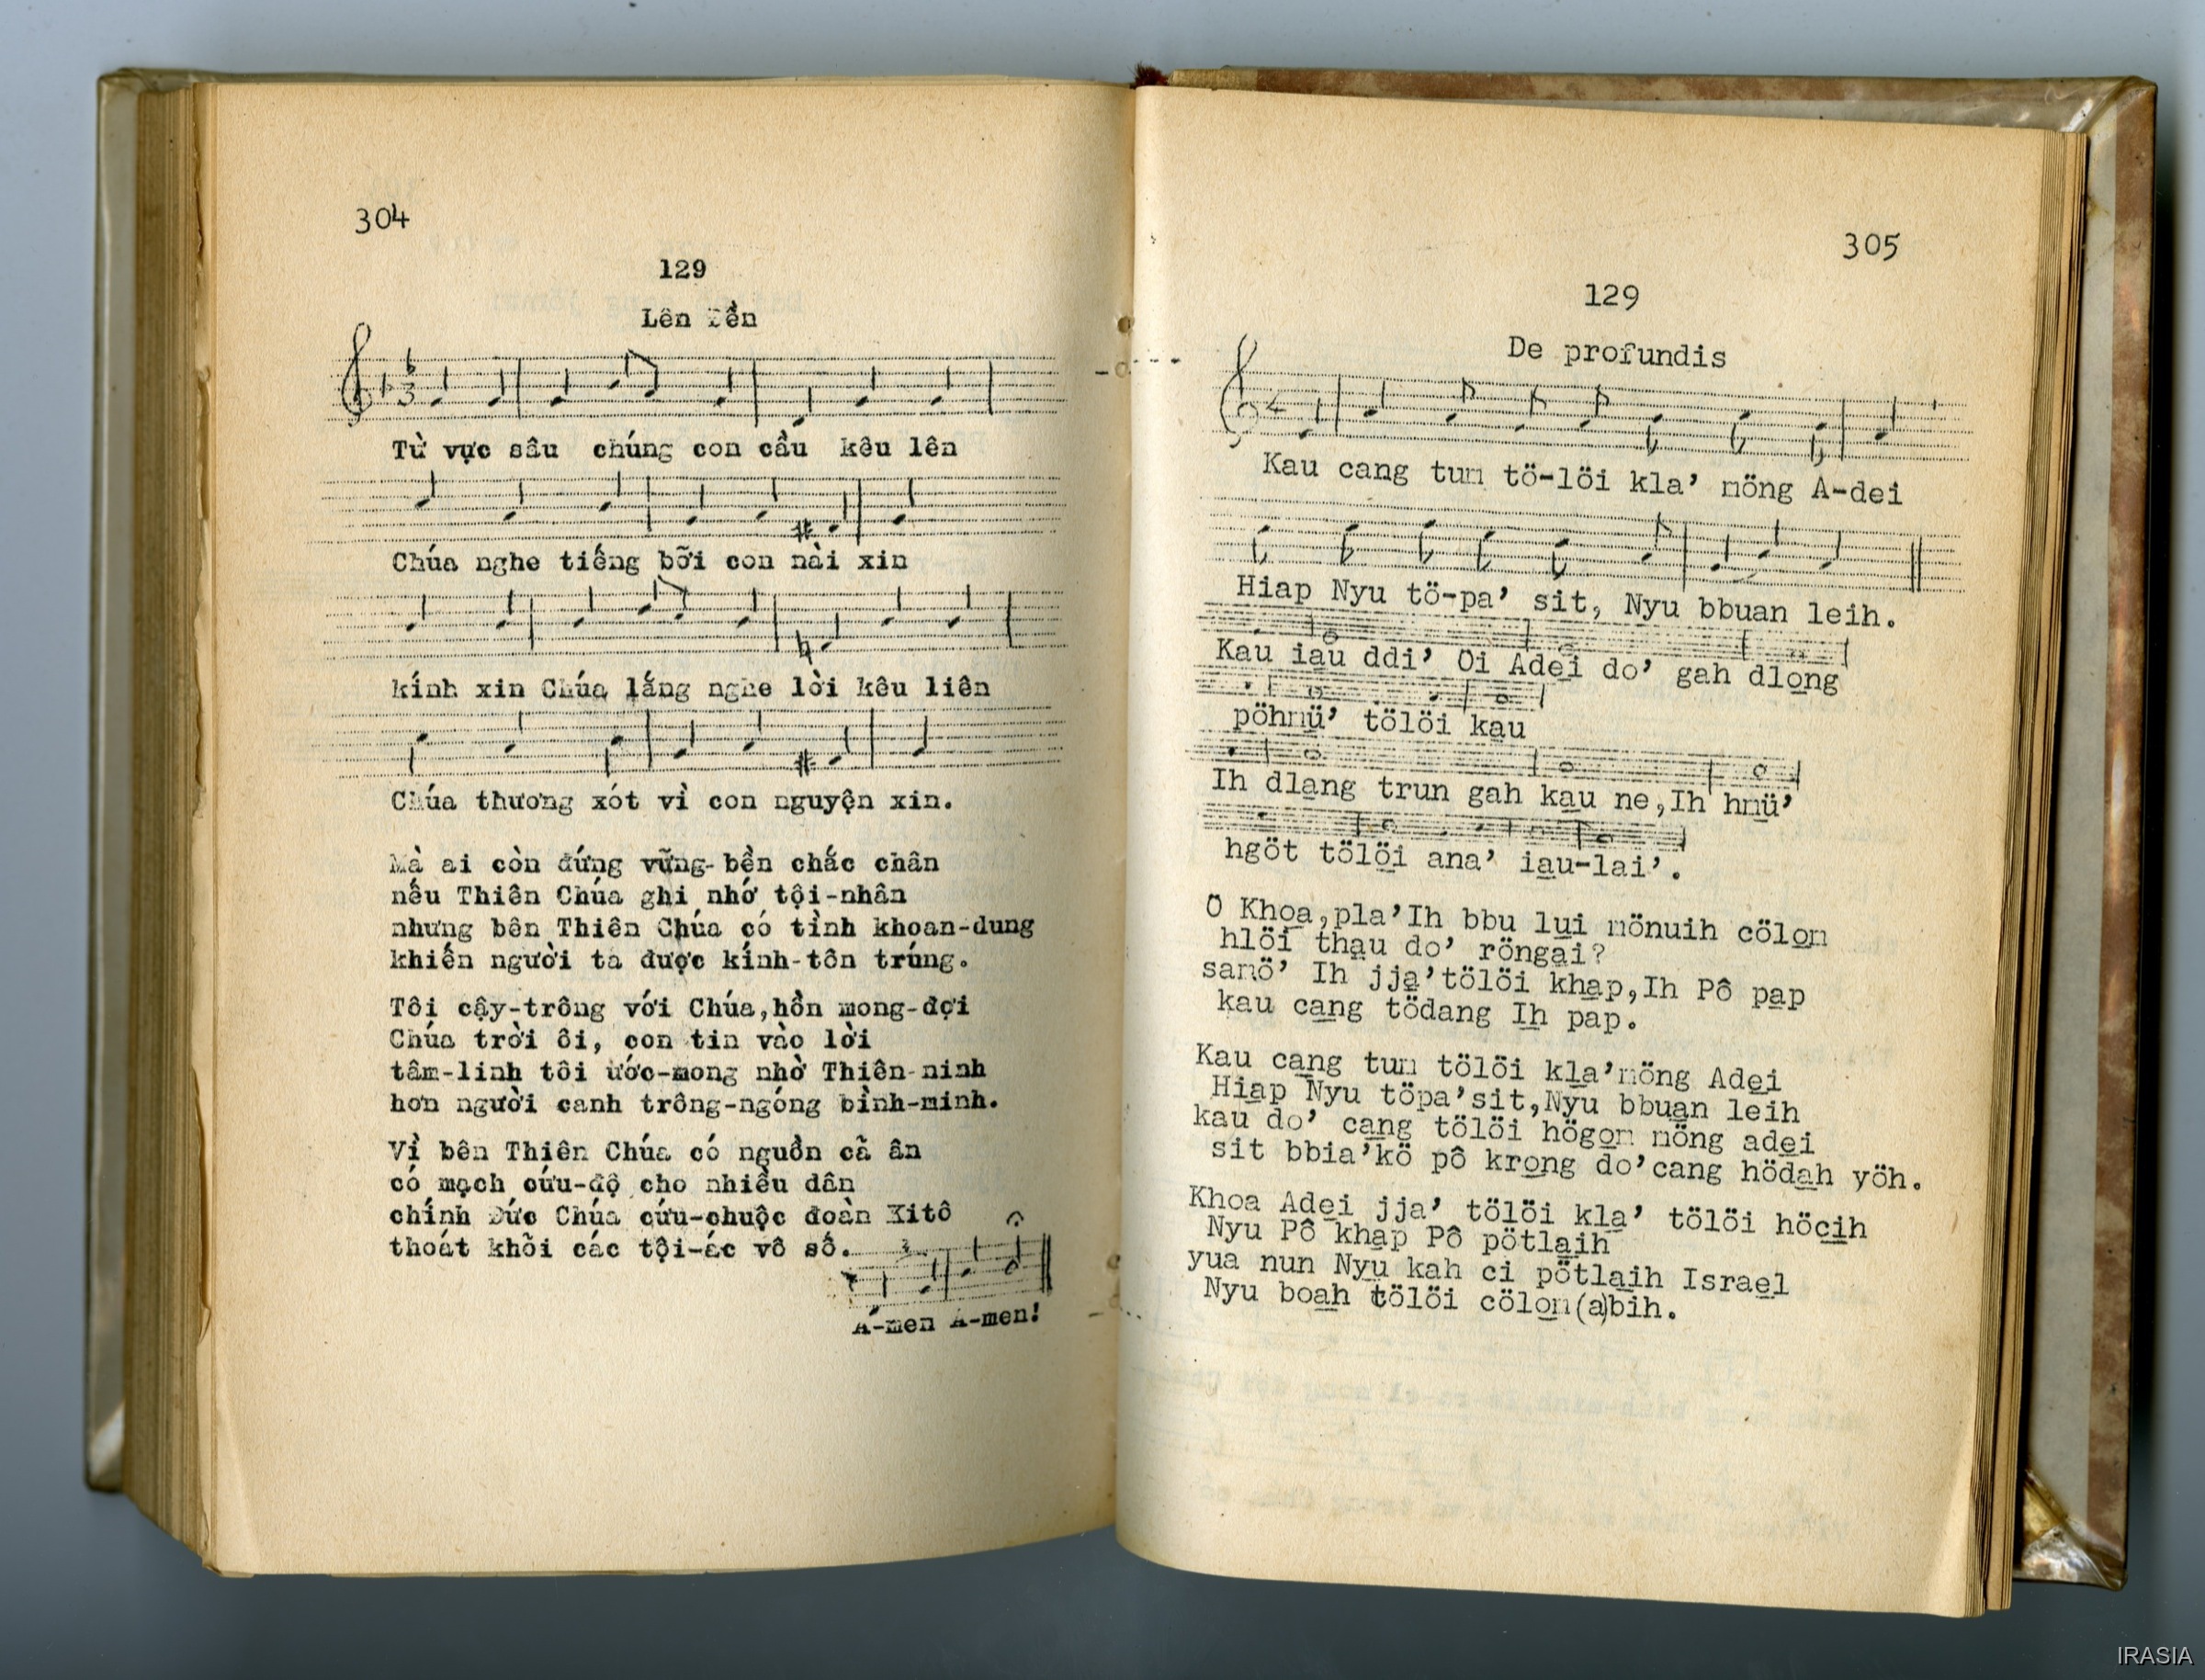 304
129
Lên Đền
Từ vực sâu chúng con cầu kêu lên
Chúa nghe tiếng bỡi con nài xin
kính xin Chúa lắng nghe lời kêu liên
Chúa thương xót vì con nguyện xin.
Mà ai còn đứng vững-bền chắc chân
nếu Thiên Chúa ghi nhớ tội-nhân
nhưng bên Thiên Chúa có tình khoan-dung
khiến người ta được kính-tôn trúng.
Tôi cậy-trông với Chúa,hồn mong-đợi
Chúa trời ôi, con tin vào lời
tâm-linh tôi ước-mong nhờ Thiên-ninh
hơn người canh trông-ngóng bình-minh.
Vì bên Thiên Chúa có nguồn cã ân
có mạch cứu-độ cho nhiều dân
chính Đức Chúa cứu-chuộc đoàn Kitô
thoát khõi các tội-ác vô số.
A-men A-men!
305
129
De profundis
Kau cang tum tö-löi kla' möng A-dei
Hiap Nyu tö-pa' sit, Nyu bbuan leih.
Kau iau ddi' Oi Adei do' gah dlong
pöhmü' tölöi kau
Ih dlang trun gah kau ne,Ih hmü'
hgöt tölöi ana' iau-lai'.
O Khoa,pla'Ih bbu lui mönuih cölom
hlöi thau do' röngai?
samö' Ih jja'tölöi khap,Ih Pô pap
kau cang tödang Ih pap.
Kau cang tum tölöi kla'möng Adei
Hiap Nyu töpa'sit,Nyu bbuan leih
kau do' cang tölöi högom möng adei
sit bbia'kö pô krong do'cang hödah yöh.
Khoa Adei jja' tölöi kla' tölöi höcih
Nyu Pô khap Pô pötlaih
yua nun Nyu kah ci pötlaih Israel
Nyu boah tölöi cölom(a)bih.
IRASIA